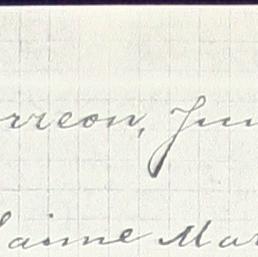 rreon, Jun
aime Mar